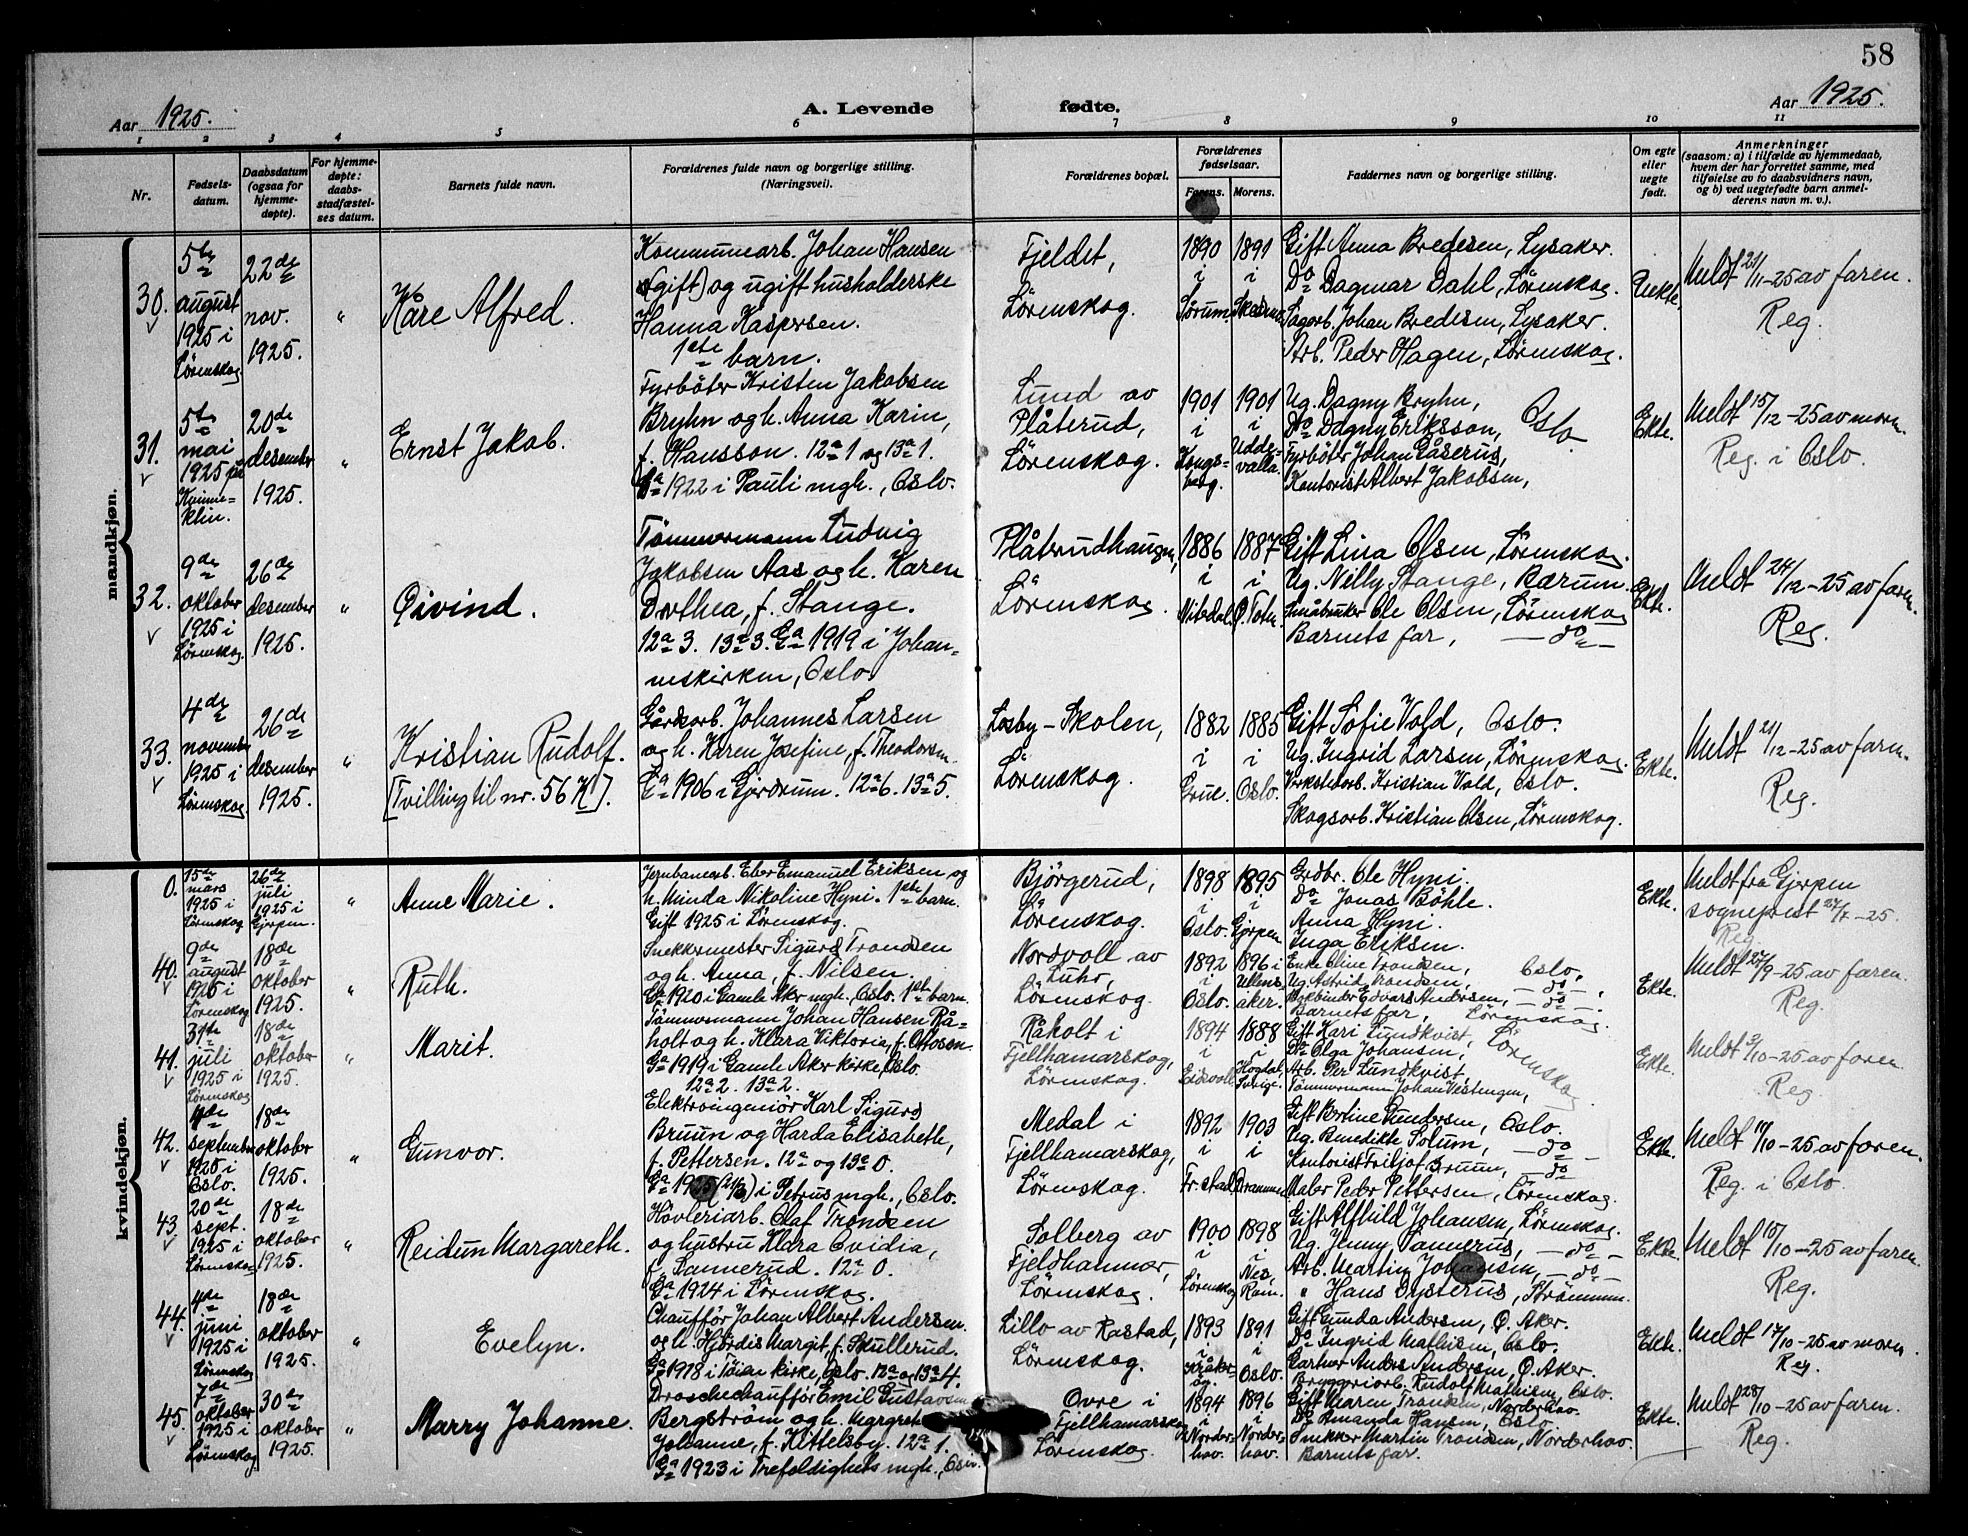 58
Aar 1925.
A. Levende fødte.
Aar 1925.
1 2 3 4 5 6 7 8 9 10 11
Nr.
Fødsels-
datum.
Daabsdatum
(ogsaa for
hjemme-
døpte).
For hjemme-
døpte:
daabs-
stadfæstel-
ses datum.
Barnets fulde navn.
Forældrenes fulde navn og borgerlige stilling.
(Næringsvei).
Forældrenes bopæl.
Forældrenes
fødselsaar.
Farens.
Morens.
Faddernes navn og borgerlige stilling.
Om egte
eller
uegte
født.
Anmerkninger
(saasom: a) i tilfælde av hjemmedaab,
hvem der har forrettet samme, med
tilføielse av to daabsvidners navn,
og b) ved uegtefødte barn anmel-
derens navn m. v.).
mandkjøn.
30.
5te
august
1925 i
Lörenskog
22de
nov.
1925.
"
Kåre Alfred.
Kommunearb. Johan Hansen
(gift) og ugift husholderske
Hanna Kaspersen.
1ste barn.
Fjeldet,
Lörenskog.
1890
i
Sørum.
1891
i
Gift Anna Bredesen, Lysaker.
Do Dagmar Dahl, Lörenskog.
Sagarb. Johan Bredesen, Lysaker.
Arb. Peder Hagen, Lörenskog.
Uekte.
Meldt 21/11-25 av faren.
Reg.
31.
5te
mai
1925 på
Kvinne-
klin.
20de
desember
1925.
"
Ernst Jakob.
Fyrböter Kristen Jakobsen
Bryhn og h. Anna Karin,
f. Hansson. 12a 1 og 13a 1.
Ga 1922 i Pauli mgh., Oslo.
Lund av
Plåterud,
Lörenskog.
1901
i
Kongs-
vng.
1901
i
Udde-
valla.
Ug. Dagny Bryhn,
Do Dagny Eriksson,
Fyrböter Johan Gåserud,
Kontorist Albert Jakobsen,
Oslo
Ekte.
Meldt 15/12-25 av moren.
Reg. i Oslo.
32.
9de
oktober
1925 i
Lörenskog.
26de
desember
1925.
"
Øivind.
Tömmermann Ludvig
Jakobsen Aas og h. Karen
Dorthea, f. Stange.
12a 3. 13a 3. Ga 1919 i Johan-
neskirken, Oslo.
Plåterudhaugen,
Lörenskog.
1886
i
Nitedal.
1887
i
Ø. Toten.
Gift Lina Olsen, Lörenskog.
Ug. Nilly Stange, Bærum.
Småbruker Ole Olsen, Lörenskog
Barnets far, — do —
Ekte.
Meldt 24/12-25 av faren.
Reg.
33.
4de
november
1925 i
Lörenskog
26de
desember
1925.
"
Kristian Rudolf.
[Tvilling til nr. 56 K].
Gårdsarb. Johannes Larsen
og h. Karen Josefine, f. Theodorsen.
Ga 1906 i Gjerdrum. 12a 6. 13a 5.
Losby-Skolen,
Lörenskog.
1882
i
Grue.
1885
i
Oslo.
Gift Sofie Vold, Oslo.
Ug. Ingrid Larsen, Lörenskog.
Verkstedarb. Kristian Vold, Oslo.
Skogsarb. Kristian Olsen, Lörenskog.
Ekte.
Meldt 21/12-25 av faren.
Reg.
kvindekjøn.
0.
15de
mars
1925 i
Lörenskog
26de
juli
1925 i
Gjerpen.
"
Anne Marie.
Jernbanearb. Eber Emanuel Eriksen og
h. Minda Nikoline Hyni. 1ste barn.
Gift 1925 i Lörenskog.
Björgerud,
Lörenskog.
1898
i
Oslo.
1895
i
Gjerpen.
Grdbr. Ole Hyni.
Do Jonas Böhle.
Anna Hyni.
Inga Eriksen.
Ekte.
Meldt fra Gjerpen
sogneprest 27/7-25.
Reg.
40.
9de
august
1925 i
Lörenskog
18de
oktober
1925.
"
Ruth.
Snekkermester Sigurd Trondsen
og h. Anna, f. Nilsen.
Ga 1920 i Gamle Aker mgh., Oslo. 1ste barn.
Nordvoll av
Luhr,
Lörenskog.
1892
i
Oslo.
1896 i
Ullens-
aker.
Enke Oline Trondsen, Oslo.
Ug. Astrid Trondsen, — do —,
Bokbinder Edvard Andersen, — do —,
Barnets far, Lörenskog.
Ekte.
Meldt 25/9-25 av faren.
Reg.
41.
31te
juli
1925 i
Lörenskog
18de
oktober
1925.
"
Marit.
Tömmermann Johan Hansen Rå-
holt og h. Klara Viktoria, f. Ottosen.
Ga 1919 i Gamle Aker kirke, Oslo.
12a 2. 13a 2.
Råholt i
Fjellhamarskog,
Lörenskog.
1894
i
Eidsvoll
1888
i
Hogdal,
Sverige.
Gift Kari Lundkvist,
Do Olga Johansen,
Arb. Per Lundkvist
Tömmermann Johan Vestengen,
Lörenskog
Ekte.
Meldt 9/10-25 av faren.
Reg.
42.
september
1925 i
Oslo.
18de
oktober
1925.
"
Gunvor.
Elektroingeniör Karl Sigurd
Bruun og Harda Elisabeth,
f. Pettersen. 12a og 13a 0.
i Petrus mgh., Oslo.
Medal i
Fjellhamarskog,
Lörenskog.
1892
i
Fr.stad
1903
i
Drammen.
Gift Bertine Gundersen, Oslo.
Ug. Benedikte Solum, — do —
Kontorist Fritjof Bruun, — do
Maler Peder Pettersen, Lörenskog.
Ekte.
Meldt 17/10-25 av faren.
Reg. i Oslo.
43.
20de
sept.
1925 i
Lörenskog
18de
oktober
1925.
"
Reidun Margareth.
Hövleriarb. Olaf Trondsen
og hustru Klara Ovidia,
f. Sannerud. 12a 0.
Ga 1924 i Lörenskog.
Solberg av
Fjeldhammer,
Lörenskog.
1900
i
Lörenskog
1898
i
Nes,
Rom.
Gift Alfhild Johansen, Lörenskog.
Ug. Jenny Sannerud, — do —
Arb. Martin Johansen, — do —
" Hans Dysterud, Strömmen.
Ekte.
Meldt 15/10-25 av faren.
Reg.
44.
4de
juni
1925 i
Lörenskog
18de
oktober
1925.
"
Evelyn.
Chaufför Johan Albert Andersen
og h. Hjördis Margit, f. Skullerud.
Ga 1918 i Töien kirke, Oslo. 12a og 13a 4.
Lillo av Rastad,
Lörenskog.
1893
i
1891
i
Oslo.
Gift Gunda Andersen, Ø. Aker.
Do Ingrid Mathisen, Oslo.
Gartner Anders Andersen, Ø. Aker.
Bryggeriarb. Rudolf Mathisen, Oslo.
Ekte.
Meldt 17/10-25 av moren.
Reg.
45.
7de
oktober
1925 i
Lörenskog
30de
oktober
1925.
"
Marry Johanne.
Droschechaufför Emil Gustavsen
Bergström og h. Margrethe
Johanne, f. Kittelsby. 12a 1.
Ga 1923 i Trefoldighets mgh., Oslo.
Övre i
Fjellhamarskog,
Lörenskog.
1894
i
Norder-
hov.
1896
i
Norder-
hov.
Gift Maren Trondsen, Norderhov.
Do Amanda Hansen, Oslo
Snekker Martin Trondsen, Norderhov.
Barnets far.
Ekte.
Meldt 28/10-25 av faren.
Reg.